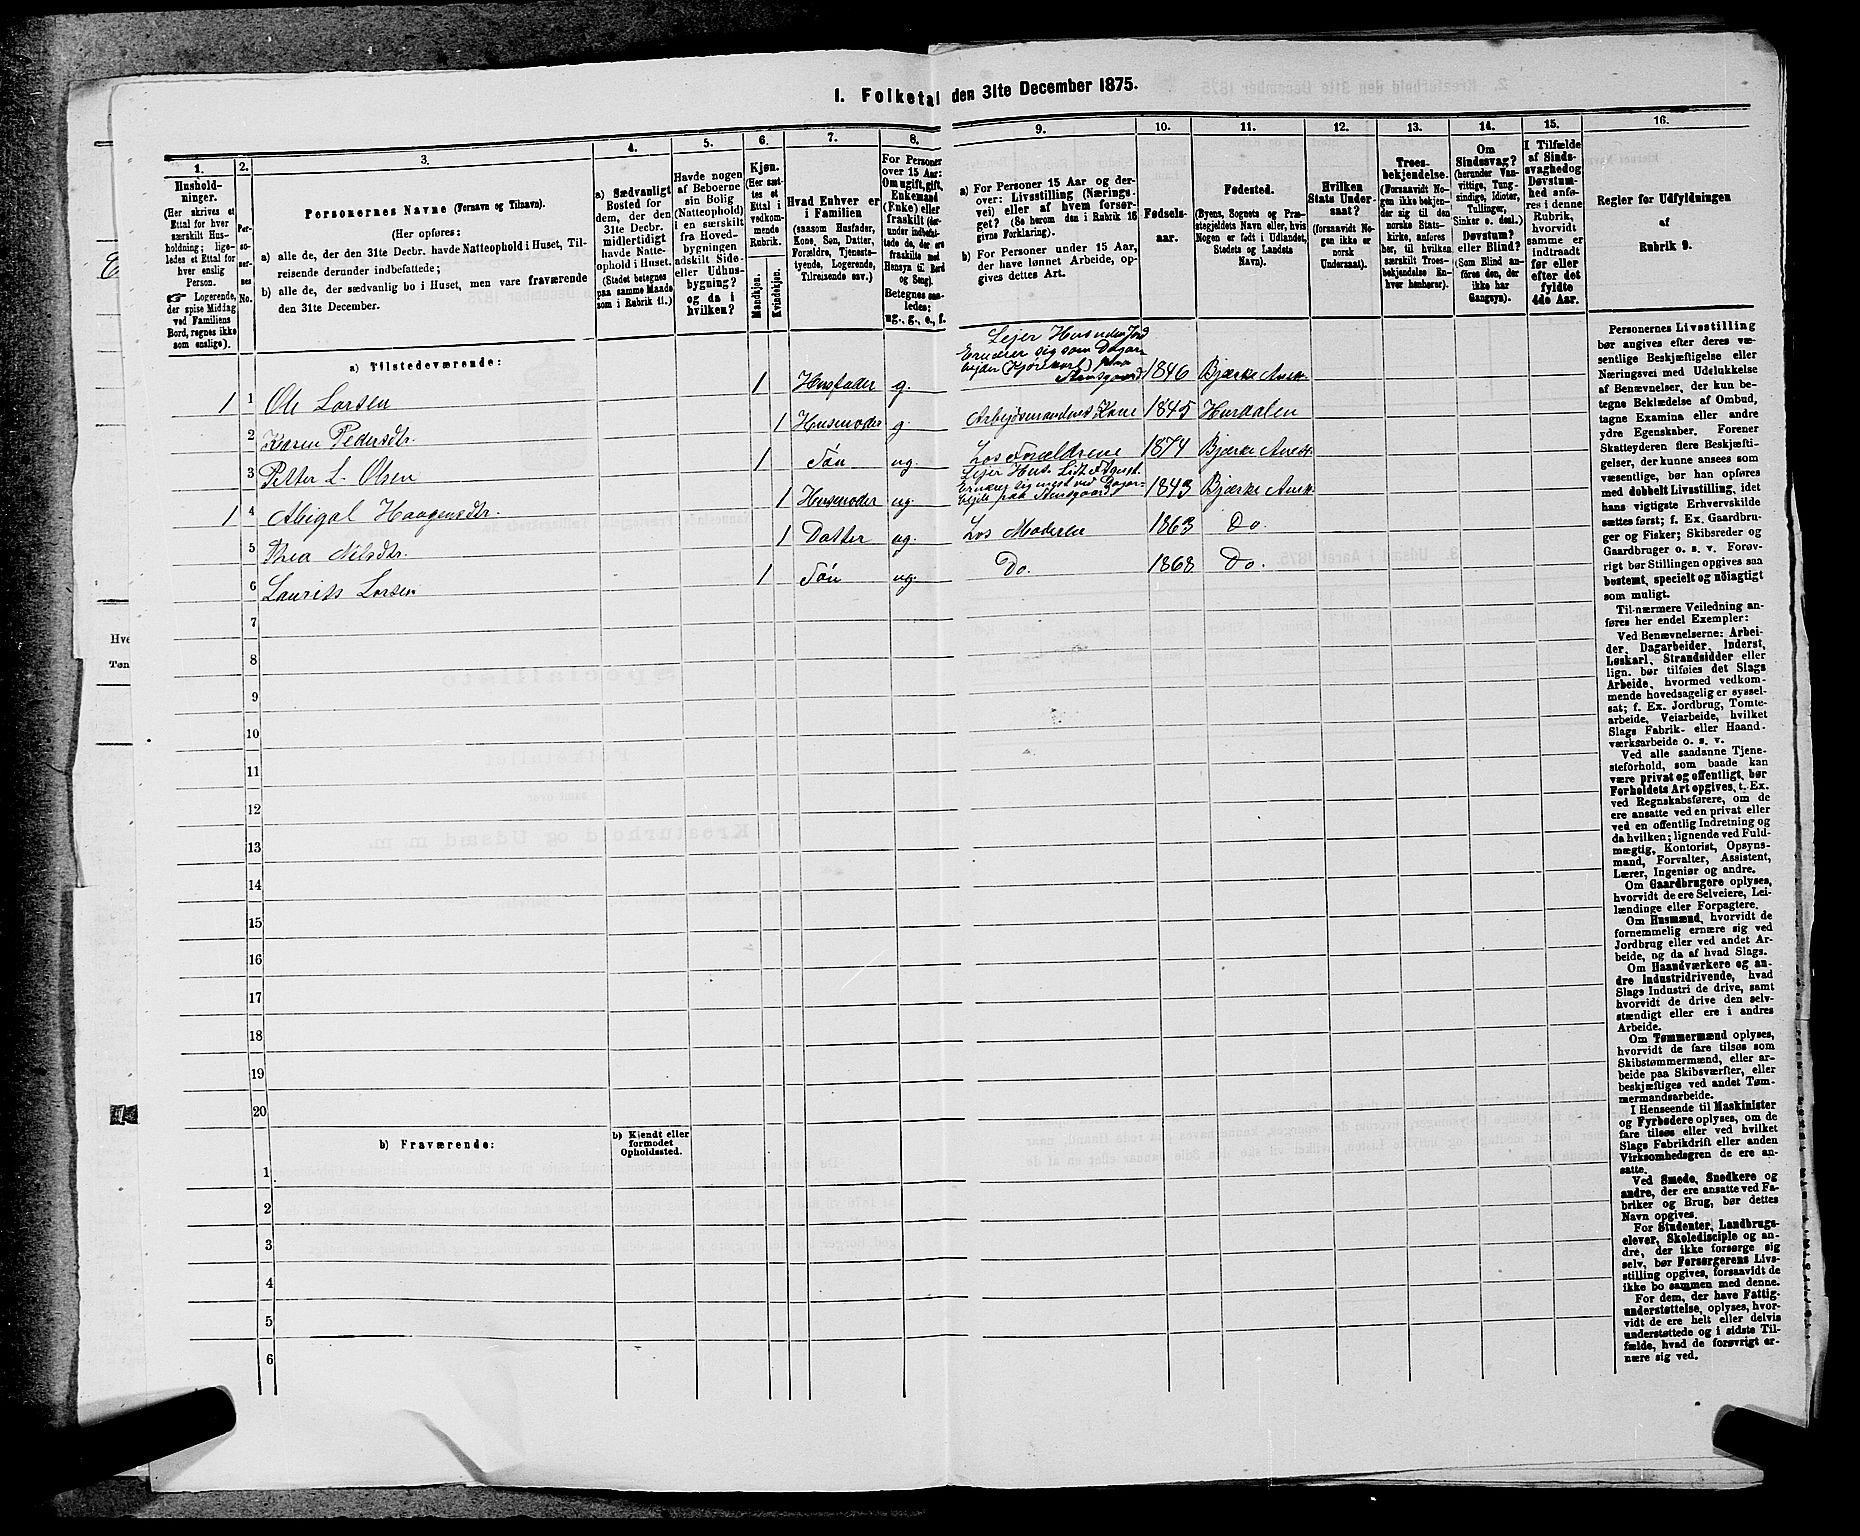 I. Folketal den 31te December 1875.
1.
2.
3.
4.
5.
6.
7.
8.
9.
10.
11.
12.
13.
14.
15.
16.
Hushold-
ninger.
(Her skrives et
Ettal for hver
særskilt Hus-
holdning; lige-
ledes et Ettal for
hver enslig
Person.
☞ Logerende,
der spise Middag
ved Familiens
Bord, regnes ikke
som enslige).
Per-
so-
ner-
nes
No.
Personernes Navne (Fornavn og Tilnavn).
(Her opføres:
a) alle de, der den 31te Decbr. havde Natteophold i Huset, Til-
reisende derunder indbefattede;
b) alle de, der sædvanlig bo i Huset, men vare fraværende
den 31te December.
a) Sædvanligt
Bosted for
dem, der den
31te Decbr.
midlertidigt
havde Natte-
ophold i Huset.
(Stedet betegnes
paa samme Maade
som i Rubrik 11.)
Havde nogen
af Beboerne
sin Bolig
(Natteophold)
i en særskilt
fra Hoved-
bygningen
adskilt Side-
eller Udhus-
bygning?
og da i
hvilken?
Kjøn.
(Her sæt-
tes et
Ettal i
vedkom-
mende
Rubrik.
Mandkjøn.
Kvindekjøn.
Hvad Enhver er
i Familien
(saasom Husfader,
Kone, Søn, Datter,
Forældre, Tjeneste-
tyende, Logerende,
Tilreisende osv.)
For Personer
over 15 Aar:
Om ugift, gift,
Enkemand
(Enke) eller
fraskilt (der-
under indbefat-
tede de, der ere
fraskilte med
Hensyn til Bord
og Seng).
Betegnes saa-
ledes:
ug., g., e., f.
a) For Personer 15 Aar og der-
over: Livsstilling (Nærings-
vei) eller af hvem forsør-
get? (Se herom den i Rubrik 16
givne Forklaring).
b) For Personer under 15 Aar,
der have lønnet Arbeide, op-
gives dettes Art.
Fødsels-
aar.
Fødested.
(Byens, Sognets og Præ-
stegjeldets Navn eller, hvis
Nogen er født i Udlandet,
Stedets og Landets
Navn).
Hvilken
Stats Under-
saat?
(forsaavidt No-
gen ikke er
norsk
Undersaat).
Troes-
bekjendelse.
(Forsaavidt No-
gen ikke bekjen-
der sig til den
norske Stats-
kirke, anføres
her, til hvilken
særskilt Troes-
bekjendelse En-
hver henhører).
Om
Sindssvag?
(herunder Van-
vittige, Tung-
sindige, Idioter,
Tullinger,
Sinker o. desl.)
Døvstum?
eller Blind?
(Som Blind an-
føres den, der
ikke har
Gangsyn).
I Tilfælde
af Sinds-
svaghed og
Døvstum-
hed anfø-
res i denne
Rubrik,
hvorvidt
samme er
indtraadt
før eller
efter det
fyldte
4de Aar.
Regler for Udfyldningen
af
Rubrik 9.
a) Tilstedeværende:
Lejer Hus uden Jord
Ernærer sig som Dagar-
1 1 Ole Larsen 1 Husfader g. bejder (Kjørekarl) paa 1846 Bjærke Annex
2 Karen Pedersdtr. 1 Husmoder g. Arbejdsmandens Kone 1845 Hurdalen
3 Petter L. Olsen 1 Søn ug. Hos Forældrene 1874 Bjærke Annex
1 4 Abigal Haagensdtr. 1 Husmoder ug. 1843 Bjærke Annex
5 Thea Nilsdtr. 1 Datter ug. Hos Moderen 1863 Do.
6 Laurits Larsen 1 Søn ug. Do. 1868 Do.
7
8
9
10
11
12
13
14
15
16
17
18
19
20
b) Fraværende:
b) Kjendt eller
formodet
Opholdssted.
1
2
3
4
5
6
Personernes Livsstilling
bør angives efter deres væ-
sentlige Beskjæftigelse eller
Næringsvei med Udelukkelse
af Benævnelser, der kun be-
tegne Beklædelse af Ombud,
tagne Examina eller andre
ydre Egenskaber. Forener
Skatteyderen flere Beskjæfti-
gelser, der kunne ansees som
væsentlige, bør han opføres
med dobbelt Livsstilling, idet
hans vigtigste Erhvervskilde
sættes først; f. Ex. Gaardbru-
ger og Fisker; Skibsreder og
Gaardbruger o. s. v. Forøv-
rigt bør Stillingen opgives saa
bestemt, specielt og nøiagtigt
som muligt.
Til nærmere Veiledning an-
føres her endel Exempler:
Ved Benævnelserne: Arbei-
der, Dagarbeider, Inderst,
Løskarl, Strandsidder eller
lign. bør tilføies det Slags
Arbeide, hvormed vedkom-
mende hovedsagelig er syssel-
sat; f. Ex. Jordbrug, Tomte-
arbeide, Veiarbeide, hvilket
Slags Fabrik- eller Haand-
værksarbeide o. s. v.
Ved alle saadanne Tjene-
steforhold, som baade kan
være privat og offentligt, bør
Forholdets Art opgives, t. Ex.
ved Regnskabsførere, om de
ere ansatte ved en privat eller
ved en offentlig Indretning og
da hvilken; lignende ved Fuld-
mægtig, Kontorist, Opsyns-
mand, Forvalter, Assistent,
Lærer, Ingeniør og andre.
Om Gaardbrugere oplyses,
hvorvidt de ere Selveiere, Lei-
lændinge eller Forpagtere.
Om Husmænd, hvorvidt de
fornemmelig ernære sig ved
Jordbrug eller ved andet Ar-
beide, og da af hvad Slags.
Om Haandværkere og an-
dre Industridrivende, hvad
Slags Industri de drive, samt
hvorvidt de drive den selv-
stændigt eller ere i andres
Arbeide.
Om Tømmermænd oplyses,
hvorvidt de fare tilsøs som
Skibstømmermænd, eller ar-
beide paa Skibsværfter, eller
beskjæftiges ved andet Tøm-
mermandsarbeide.
I Henseende til Maskinister
og Fyrbødere oplyses, om de
fare tilsøs eller ved hvilket
Slags Fabrikdrift eller anden
Virksomhedsgren de ere an-
satte.
Ved Smede, Snedkere og
andre, der ere ansatte ved Fa-
briker og Brug, bør dettes
Navn opgives.
For Studenter, Landbrugs-
elever, Skoledisciple og an-
dre, der ikke forsørge sig
selv, bør Forsørgerens Livs-
stilling opgives, forsaavidt de
ikke bo sammen med denne.
For dem, der have Fattig-
understøttelse, oplyses, hvor-
vidt de ere helt eller delvis
understøttede og i sidste Til-
fælde, hvad de forøvrigt er-
nære sig ved.